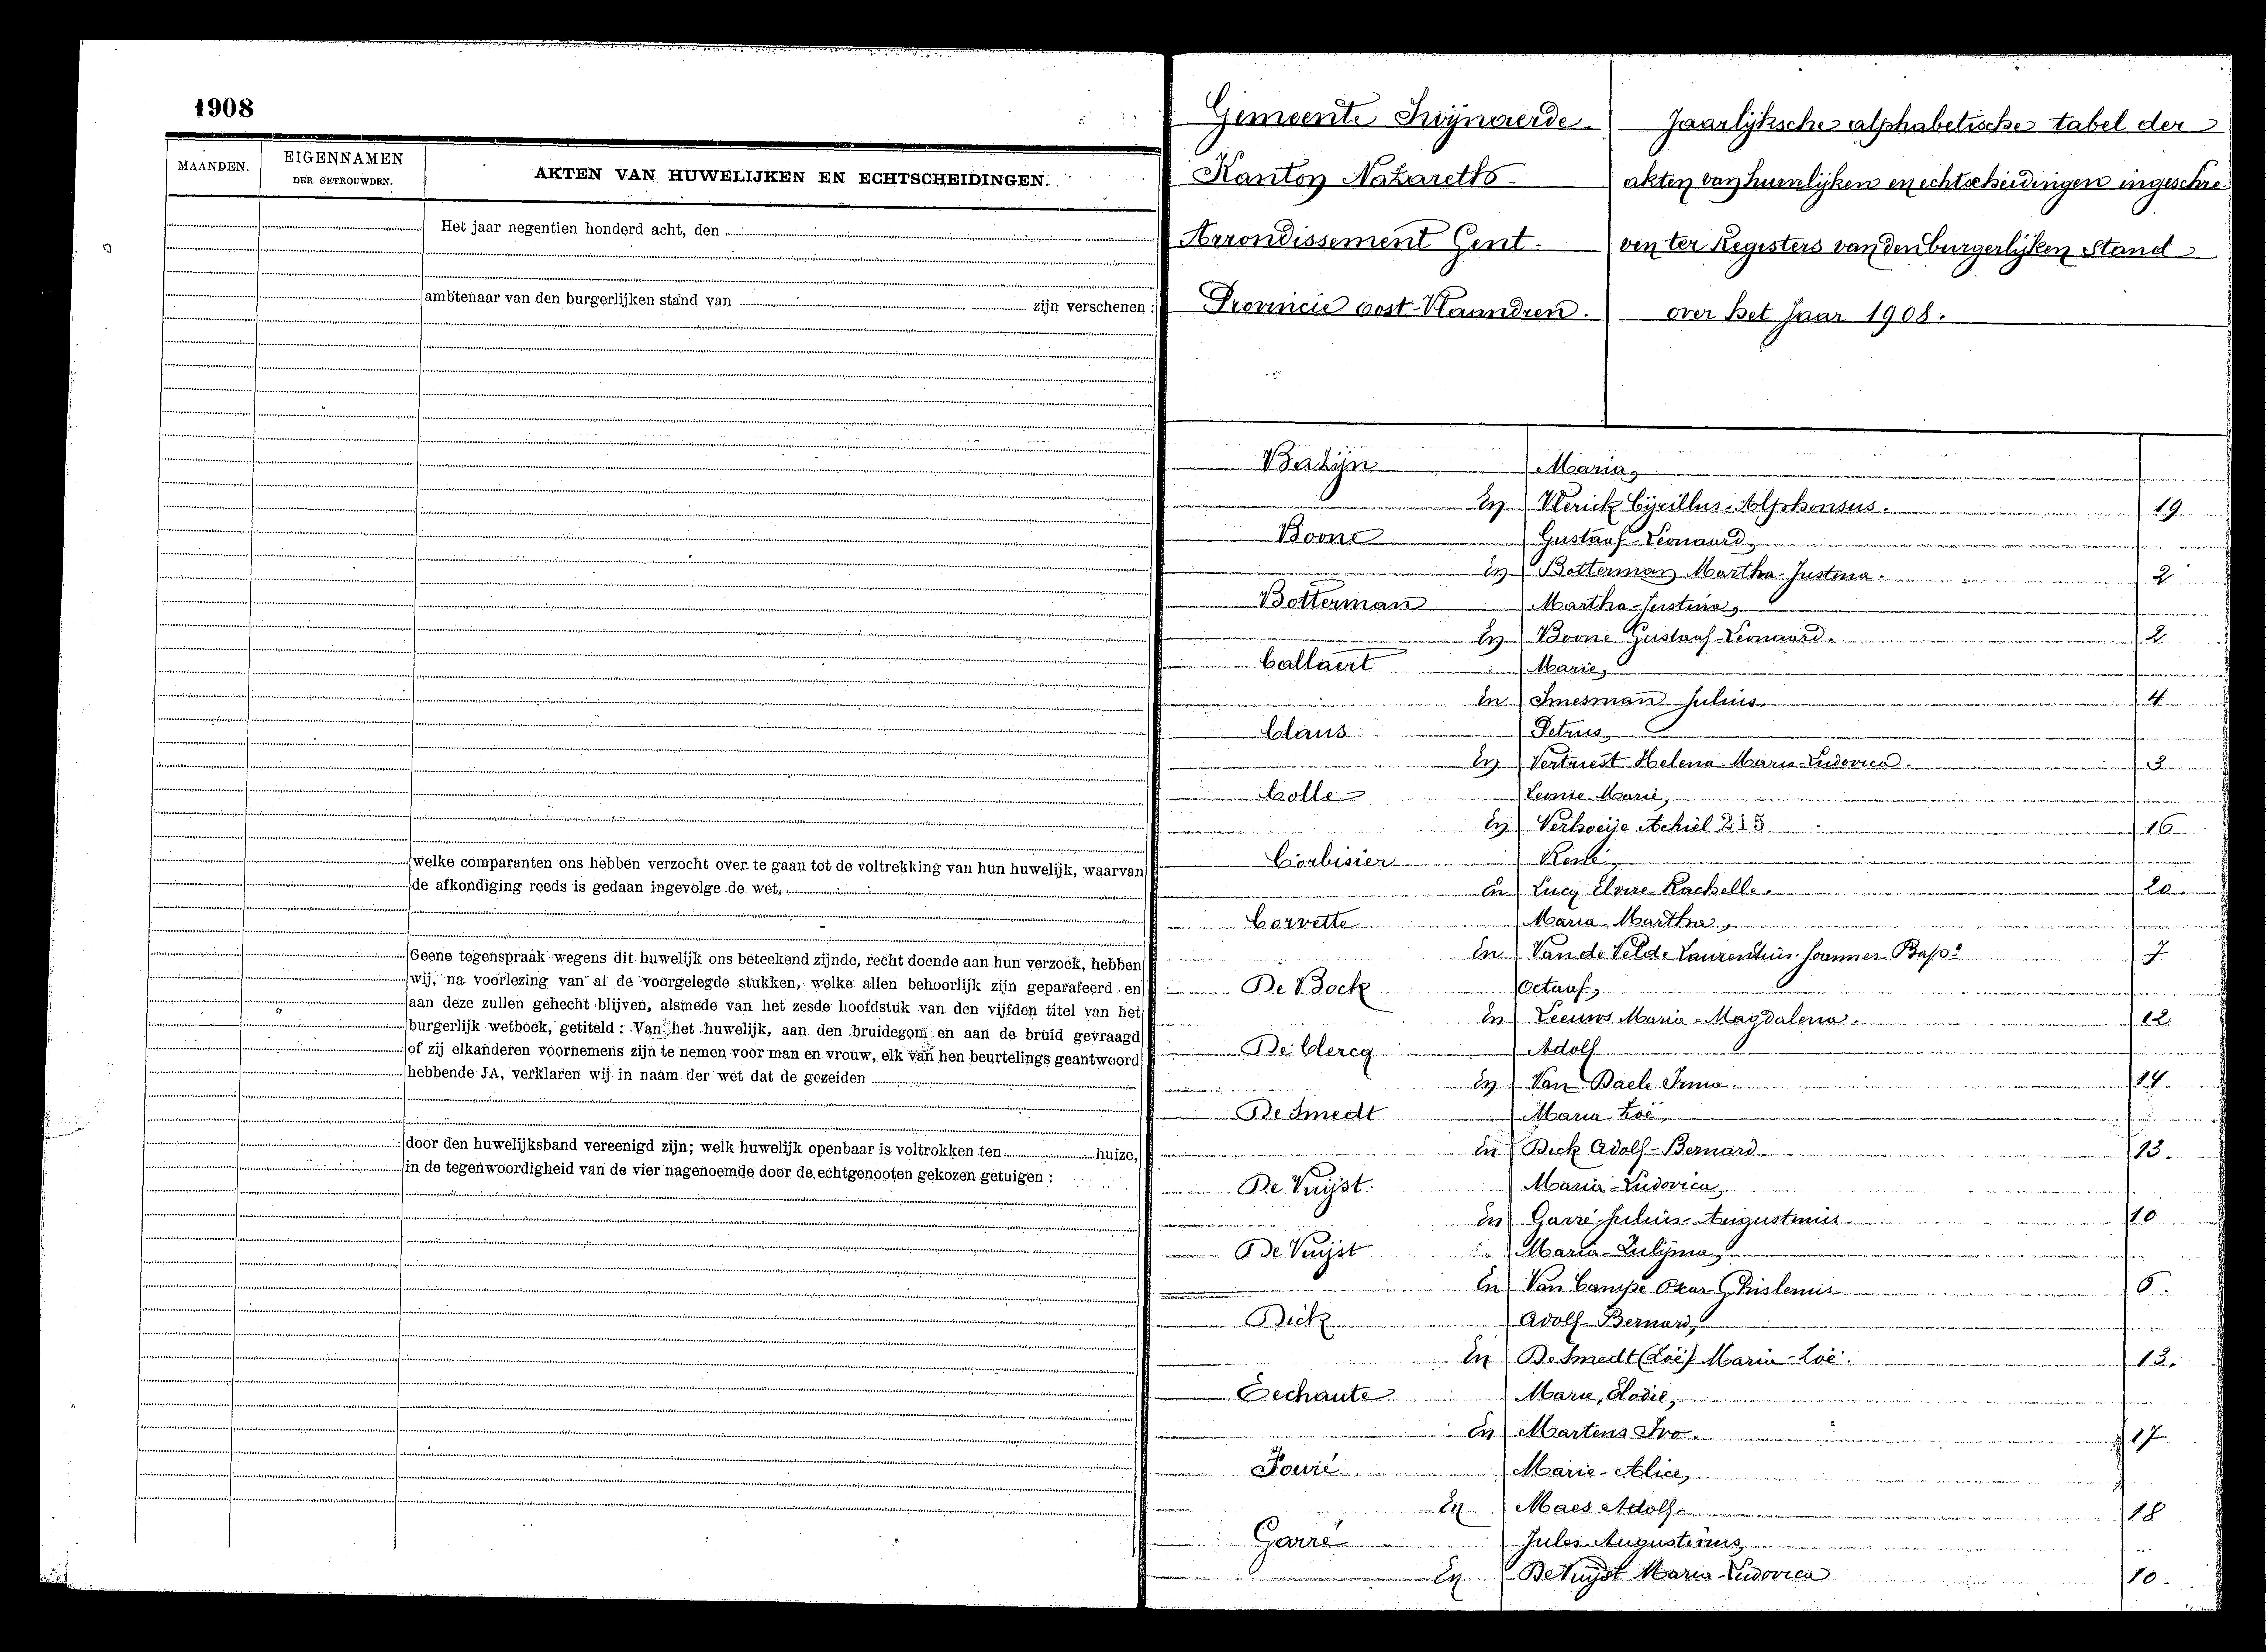 1908
MAANDEN.
EIGENNAMEN
DER GETROUWDEN.
AKTEN VAN HUWELIJKEN EN ECHTSCHEIDINGEN.
Het jaar negentien honderd acht, den
ambtenaar van den burgerlijken stand van zijn verschenen:
welke comparanten ons hebben verzocht over te gaan tot de voltrekking van hun huwelijk, waarvan
de afkondiging reeds is gedaan ingevolge de wet,
Geene tegenspraak wegens dit huwelijk ons beteekend zijnde, recht doende aan hun verzoek, hebben
wij, na voorlezing van al de voorgelegde stukken, welke allen behoorlijk zijn geparafeerd en
aan deze zullen gehecht blijven, alsmede van het zesde hoofdstuk van den vijfden titel van het
burgerlijk wetboek, getiteld: Van het huwelijk, aan den bruidegom en aan de bruid gevraagd
of zij elkanderen voornemens zijn te nemen voor man en vrouw, elk van hen beurtelings geantwoord
hebbende JA, verklaren wij in naam der wet dat de gezeiden
door den huwelijksband vereenigd zijn; welk huwelijk openbaar is voltrokken ten huize,
in de tegenwoordigheid van de vier nagenoemde door de echtgenooten gekozen getuigen:
Gemeente Swijnaerde.
Kanton Nazareth
Arrondissement Gent.
Provincie oost-Vlaandren.
Jaarlijksche alphabetische tabel der
akten van huwelijken en echtscheidingen ingeschre-
ven ter Registers van den burgerlijken Stand
over het Jaar 1908.
Maria,
En Cyrillus-Alphonsus. 19.
Boone Gustaaf-Leonaard,
En Botterman Martha-Justina. 2
Botterman Martha-Justina,
En Boone Gustaaf-Leonaard. 2
Callaert Marie,
En Smesman Julius. 4
Claus Petrus,
En Vertriest Helena-Maria-Ludovica. 3
Colle Leonie-Marie,
En Verhoeije Achiel 16
Corbisier
En Lucq Elvire-Rachelle. 20.
Corvette Maria-Martha,
En Van de Velde Laurentius-Joannes-Bapt 7
De Bock Octaaf,
En Leeuws Maria-Magdalena. 12
De Clercq Adolf
En Van Daele Irma. 14.
De Smedt Maria-Zoë,
En Dick Adolf-Bernard. 13.
De Vuijst Maria-Ludovica,
En Garré Julius-Augustinus 10
De Vuijst Maria-Zulijma,
En Van Campe Oscar-Ghislenus 6.
Dick Adolf-Bernard,
En De Smedt (Zoë) Maria-Zoë. 13.
Eechaute Marie, Elodie,
En Martens Ivo. 17
Fouré Marie-Alice,
En Maes Adolf. 18
Garré Jules-Augustinus,
En De Vuijst Maria-Ludovica 10.